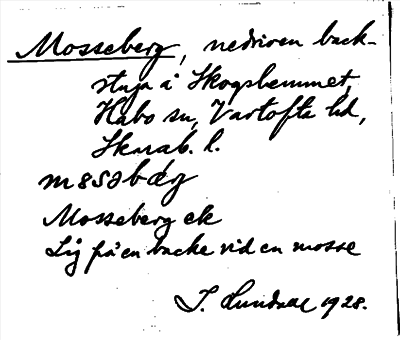 Mosseberg, nedriven back-
stuga å Skogshemmet,
Habo sn, Vartofta hd,
Skarab. l.
mɞsəbærj
Mosseberg ek
Låg på en backe vid en mosse
S. Lundahl 1928.